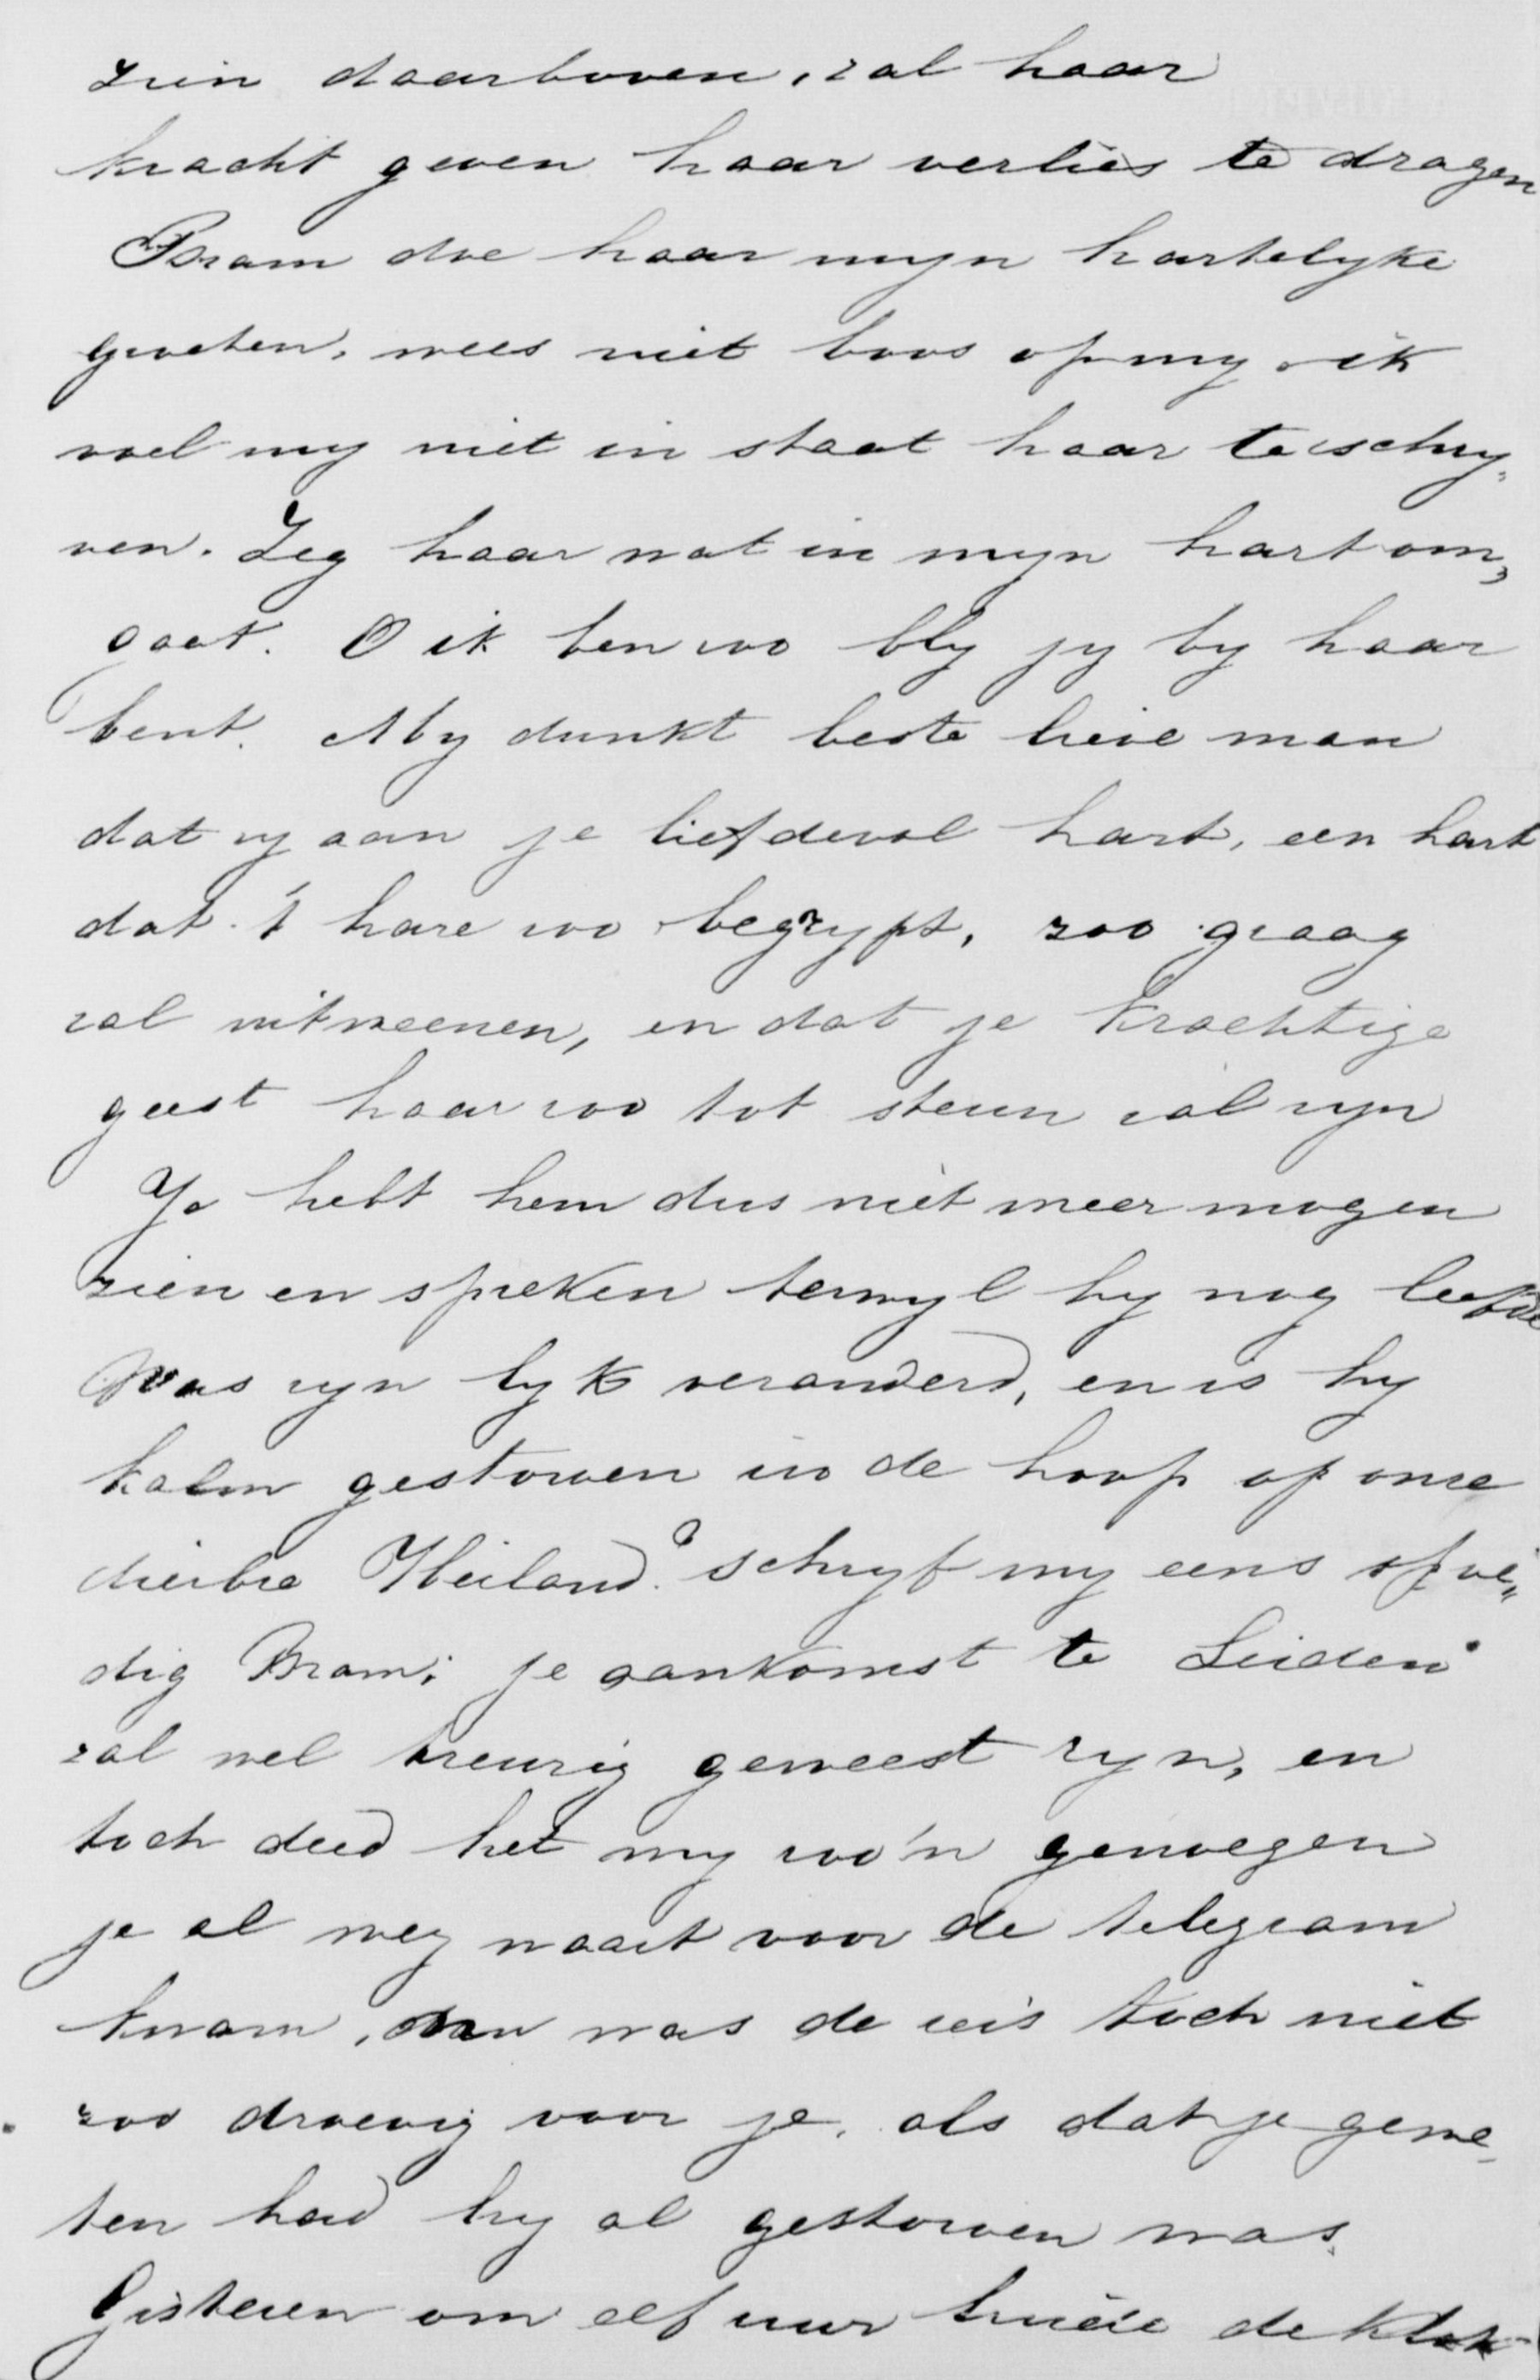 zien daarboven, zal haar
kracht geven haar verlies te dragen
Bram doe haar myn hartelyke
groeten, wees niet boos op my ik
voel my niet in staat haar te schry„
ven. Zeg haar wat in myn hart om„
gaat. O ik ben zoo bly jy by haar
bent. My dunkt beste lieve man
dat zy aan je liefdevol hart, een hart
dat 't hare zoo begrypt, zoo graag
zal uitweenen, en dat je krachtige
geest haar zoo tot steun zal zyn
Je hebt hem dus niet meer mogen
zien en spreken terwyl hy nog leefde
Was zyn lyk veranderd, en is hy
kalm gestorven in de hoop op onze
dierbre Heiland? schryf my eens spoe„
dig Bram; je aankomst te Leiden
zal wel treurig geweest zyn, en
toch deed het my zoo'n genoegen
je al weg waart voor de telegram
kwam, dan was de reis toch niet
zoo droevig voor je, als dat je gewe„
ten had hy al gestorven was.
Gisteren om elf uur luide de klok